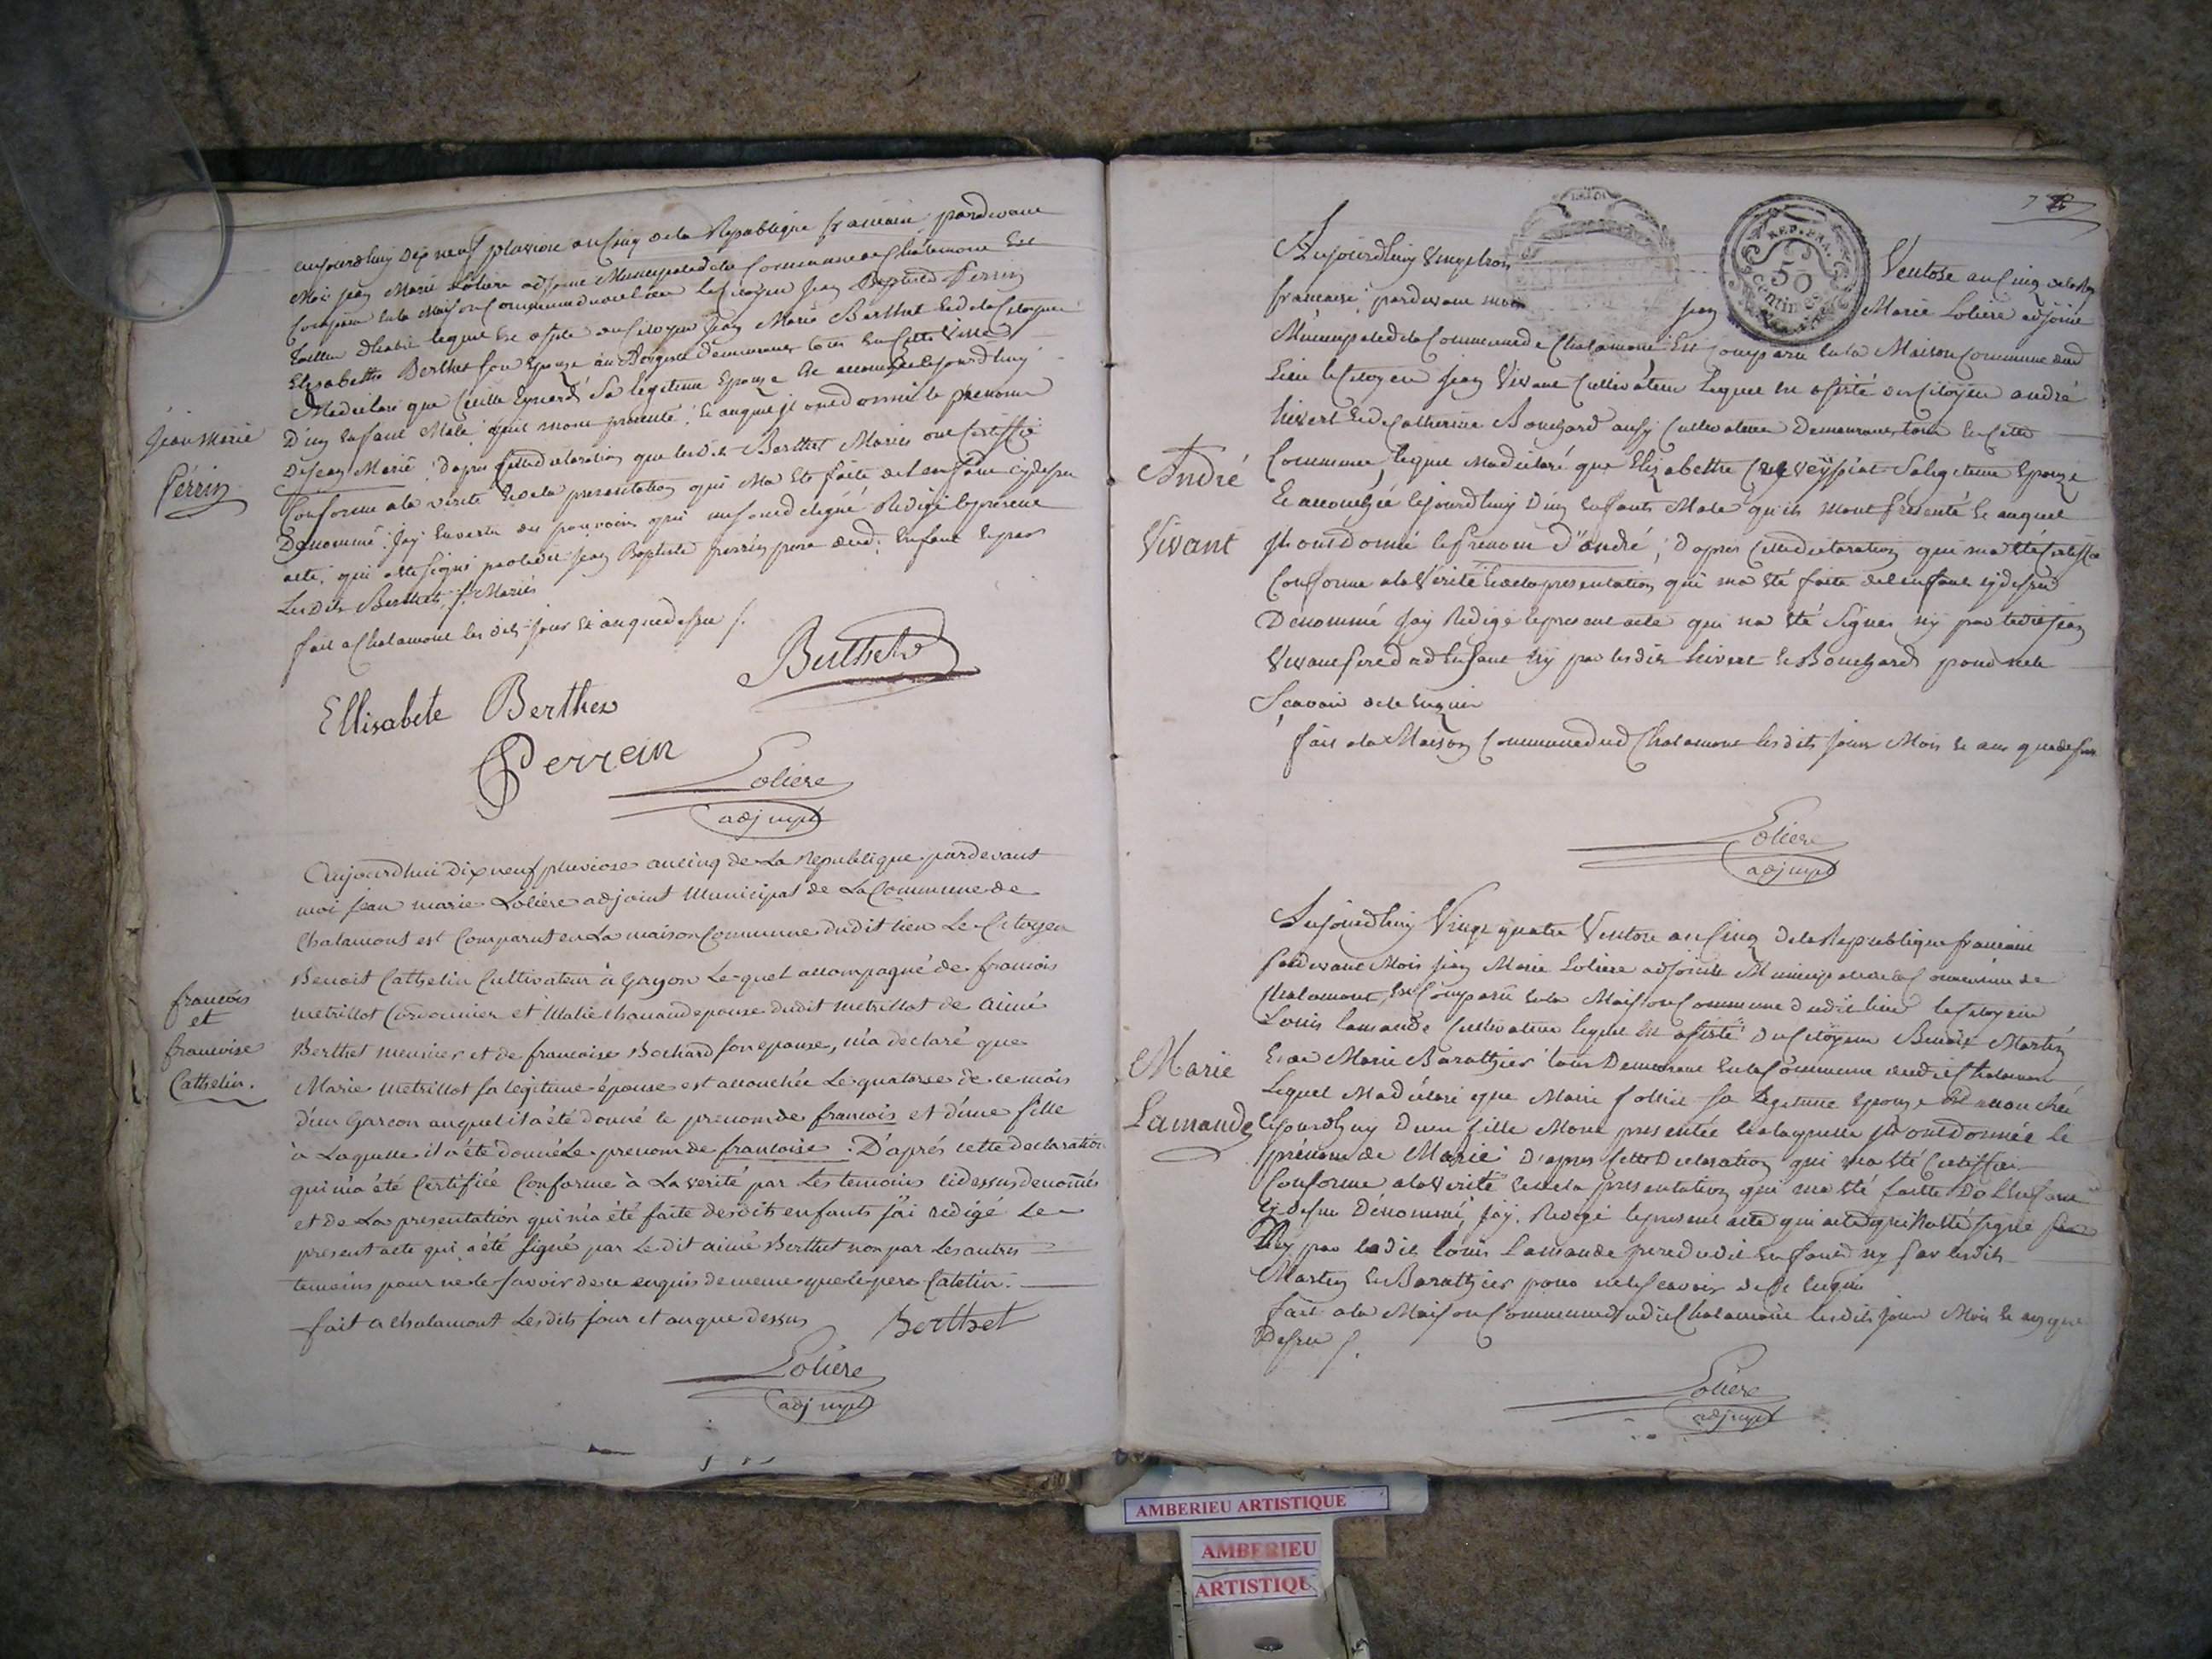 aujourdhuy dix neuf pluviose an cinq de la Republique francaise pardevant
Moi jean Marie Loliere adjoint Municipal de la Commune de Chalamont Est
Comparu en la Maison Commune dudit lieu le Citoyen Jean Baptiste Perrin
tailleur d'habit lequel est assisté du Citoyen Jean Marie Berthet et de la Citoyenne
Elisabeth Berthet son Epouze demeurants tous en cette Ville
Ma déclaré que Sa légitime Epouze Est accouchée cejourdhuy
D'un Enfant Male qu'il mont presenté, et auquel il ont donnés le prenom
Jean Marie
Perrin
De Jean Marie, d'apres cette declaration que lesdits Berthet Mariés ont certiffié
Conforme a la verité et de la presentation qui Ma Eté faite de l'enfant cy dessu
Denommé. Jay en vertu des pouvoirs qui me sont delégué Redigé le present
acte, qui a eté signé par ledit Jean Baptiste perrin pere dud. Enfant et par
Lesdits Berthet Mariés
fait a Chalamont les dits jour et an que dessu
Berthet
Ellisabete Berthet
Perrein
Loliere
adj mpl
Aujourdhui Dix neuf pluviose an cinq de La Republique pardevant
moi jean marie Loliere adjoint Municipal de La Commune de
Chalamont est Comparut en La maison Commune dudit lieu Le Citoyen
Benoit Cathelin Cultivateur à Lequel accompagné de francois
metrillot Cordonnier et epouse dudit metrillot de aimé
francois
et
francoise
Cathelin.
Berthet meunier et de francoise Bochard son epouse, m'a declaré que
Marie metrillot sa legitime épouse est accouchée Le quatorze de ce mois
d'un Garcon auquel il a été donné le prenom de francois et d'une fille
à Laquelle il a été donné Le prenom de francoise. D'aprés cette declaration
qui m'a été Certifiée Conforme à La verité par Les temoins cidessus denomés
et de La presentation qui m'a été faite desdits enfants j'ai redigé Le
present acte qui a été signé par Le dit aimé Berthet non par Les autres
temoins pour ne le savoir de ce enquis de meme que le pere Catelin.
fait a chalamont Les dits jour et an que dessus Berthet
Loliere
adj mpl
REP. FRA.
50
centimes
Aujourdhuy Vingt trois Ventose an Cinq de la Rep
francaise, pardevant moi Jean Marie Loliere adjoint
Municipal de la Commune de Chalamont Est comparu en la Maison Commune dud
Lieu le Citoyen Jean Vivant Cultivateur lequel est assisté du Citoyen andré
hivert et de Catherine Bouchard aussy Cultivateur Demeurants tous en cette
André
Vivant
Commune, lequel Ma déclaré que Elizabethe Sa legitime Epouze
Est accouchée cejourdhuy D'un Enfants Male qu'ils mont presenté et auquel
il ont donné le prenom D'andré, d'apres cette declaration qui ma eté certiffié
Conforme a la Verité et de la presentation qui ma été faite de lenfant cy dessu
Denommé Jay Redigé le present acte qui na eté Signer ny par ledit jean
Vivant pere dud Enfant ny par lesdits hivert et Bouchard pour ne le
Scavoir de ce enquis
fait a la Maison Commune dud Chalamont lesdits jour Mois et an que dessu
Loliere
adj mpl
Aujourdhuy Vingt quatre Ventose an Cinq de la Republique francaise
Pardevant Mois jean Marie Loliere adjoint Municipal de la Commune de
Chalamont, est Comparu en la Maison Commune dudit lieu le Citoyen
Louis lamande Cultivateur lequel est assisté du Citoyen Benoit Martin
Marie
Lamande
et de Marie Barathier tous Demeurant en la Commune dudit Chalamont
Lequel Ma déclaré que Marie follict sa legitime Epouze Est accouchée
cejourdhuy d'une fille Mont presentée et a laquelle il ont donnée le
prénom de Marie, D'apres cette Declaration qui ma eté Certiffiée
Conforme a la verité et de la presentation qui ma eté faitte De l'enfant
cy dessu Dénommé, Jay Redigé le present acte qui na eté signé
Ny par ledit Louis Lamande pere dudit Enfant ny par lesdits
Martin et Barathier pour ne le scavoir de ce enquis
fait a la Maison Commune dudit Chalamont lesdits jour Mois et an que
Dessu
Loliere
adj mpl
AMBERIEU ARTISTIQUE
AMBERIEU
ARTISTIQUE